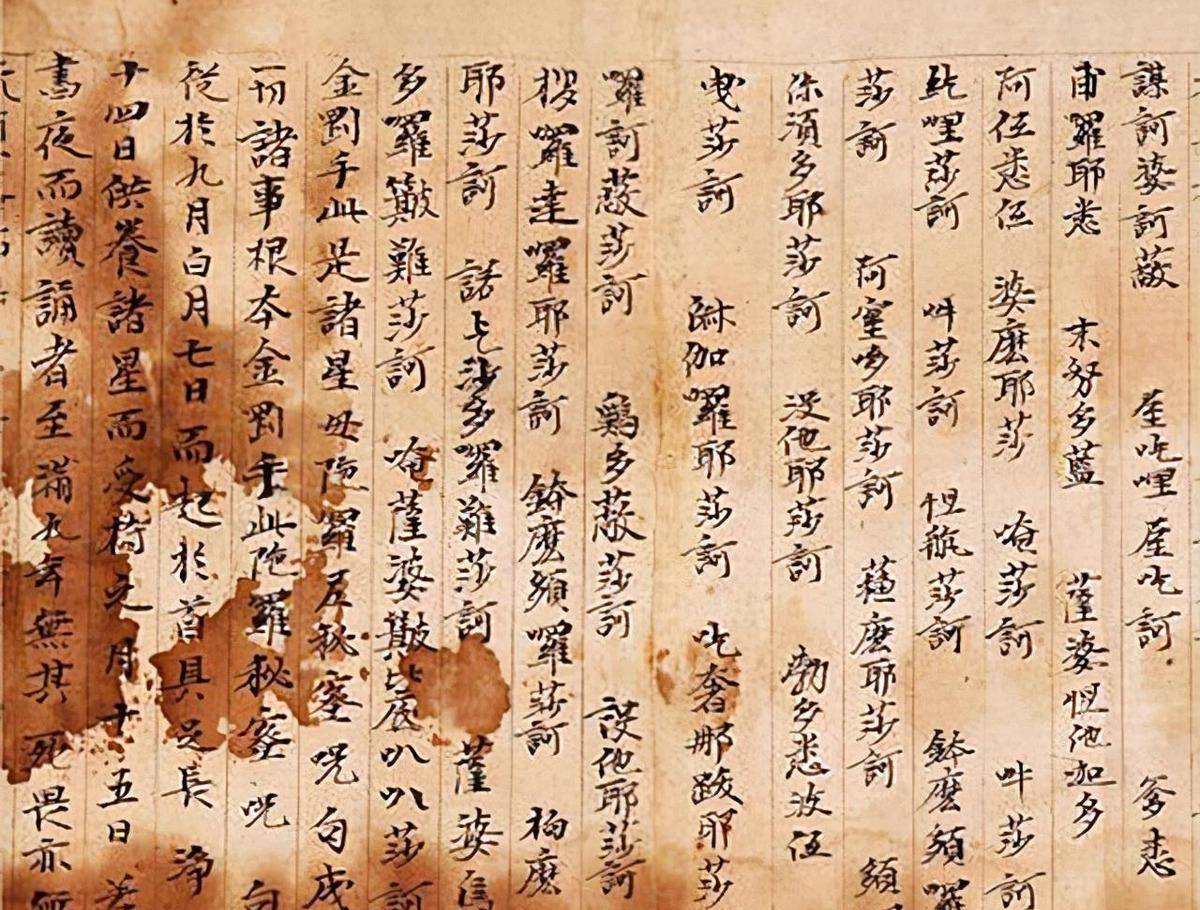 謀訶婆訶蔽 吃哩 吃訶 爹悉
甫羅耶悉 末努多藍 薩婆怛他加多
阿伍悉伍 婆麽耶莎 唵莎訶 吽莎訶
哩莎訶 吽莎訶 怛莎訶 鉢麽頞囉
莎訶 阿室哆耶莎訶 蘓麽耶莎訶 頞
須多耶莎訶 没他耶莎訶 勃多悉波伍
曳莎訶 伽囉耶莎訶 吃奢那跛耶莎
囉訶蔽莎訶 鷄多蔽莎訶 没他耶莎訶
囉達囉耶莎訶 鉢麽頞囉莎訶 麽
耶莎訶 諾乞莎多囉難莎訶 薩婆烏
多囉難莎訶 唵薩婆底叭叭莎訶
金剛手此是諸星母陀羅尼秘密呪句成
一切諸事根本金剛手此陀羅秘密呪句
從於九月白月七日而起於首具足長净
十四日供養諸星而受持之月十五日
晝夜而讀誦者至滿九年無其死畏亦無